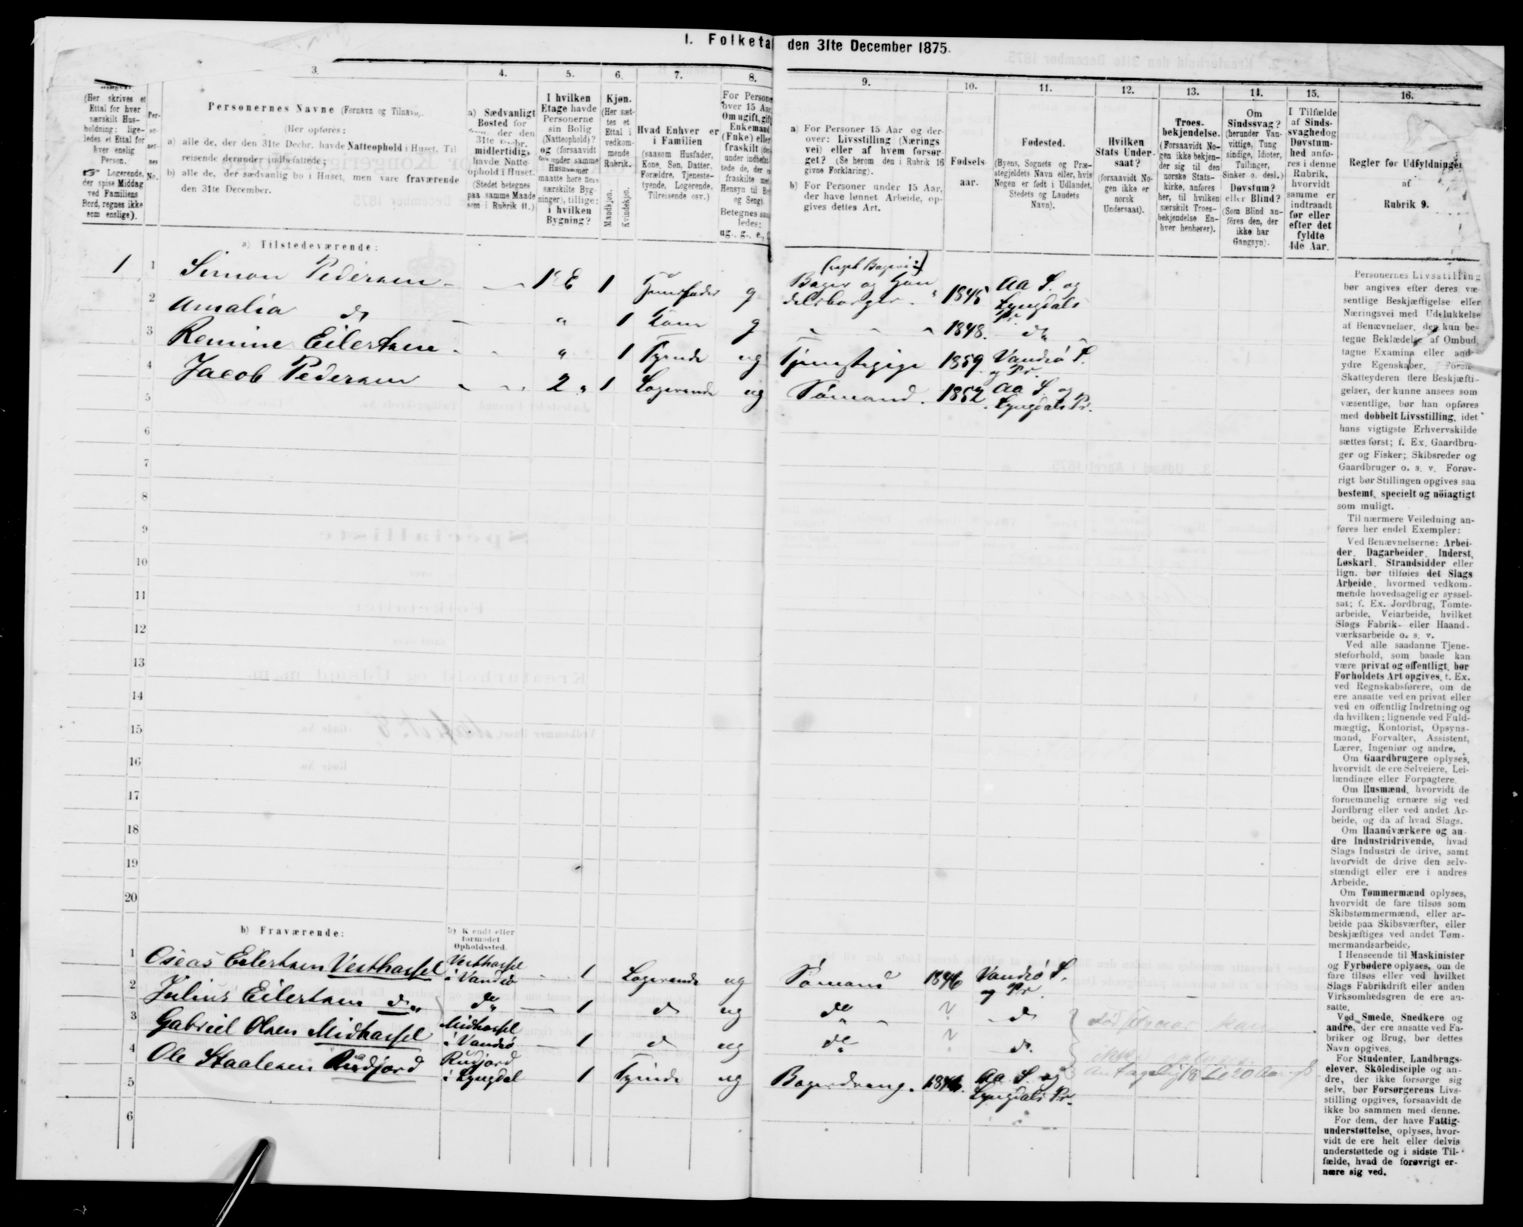 I. Folketa den 31te December 1875.
3.
4.
5.
6.
7.
8.
9.
10.
11.
12.
13.
14.
15.
16.
(Her skrives et
Ettal for hver
særskilt Hus-
holdning; lige-
ledes et Ettal for
hver enslig
Person.
Logerende,
der spise Middag
ved Familiens
Bord, regnes ikke
som enslige).
Per-
so-
ner-
nes
No.
Personernes Navne (Fornavn og Tilnavn).
(Her opføres:
a) alle de, der den 31te Decbr. havde Natteophold i Huset. Til
reisende derunder indbefattede;
b) alle de, der sædvanlig bo i Huset, men vare fraværende
den 31te December.
a) Sædvanligt
Bosted for
der den
31te Decbr.
midlertidig
havde Natte
ophold i Huset.
(Stedet betegnes
paa samme Maade
som i Rubrik 11.)
I hvilken
Etage havde
Personerne
sin Bolig
(Natteophold)?
og (forsaavidt
under samme
maatte høre flere
særskilte Byg-
ninger), tillige:
i hvilken
Bygning?
Kjøn.
(Her sæt-
tes et
Ettal i
vedkom-
mende
Rubrik.
Mandkjøn.
Kvindekjøn.
Hvad Enhver er
i Familien
(saasom Husfader,
Kone, Søn, Datter,
Forældre, Tjeneste-
tyende, Logerende,
Tilreisende osv.)
For Persone
over 15 Aar
Om ugift, gift
Enkemand
(Enke) eller
fraskilt
Betegnes saa
ledes:
ug., g., e.,
a) For Personer 15 Aar og der-
over: Livsstilling (Nærings
vei) eller af hvem forsør-
get? (Se herom den i Rubrik 16
givne Forklaring).
b) For Personer under 15 Aar,
der have lønnet Arbeide, op-
gives dettes Art.
Fødsels
aar.
Fødested.
(Byens, Sognets og Præ-
stegjeldets Navn eller, hvis
Nogen er født i Udlandet,
Stedets og Landets
Navn).
Hvilken
Stats Under-
saat?
(forsaavidt No-
gen ikke er
norsk
Undersaat).
Troes-
bekjendelse.
(Forsaavidt No-
gen ikke bekjen-
der sig til den
norske Stats-
kirke, anføres
her, til hvilken
særskilt Troes-
bekjendelse En-
hver henhører).
Om
Sindssvag?
(herunder Van-
vittige, Tung
sindige, Idioter,
Tullinger,
Sinker o. desl.)
Døvstum?
eller Blind?
(Som Blind an-
føres den, der
ikke har
Gangsyn).
I Tilfælde
af Sinds-
svaghedog
Døvstum-
hed anfø-
res i denne
Rubrik,
hvorvidt
samme er
indtraadt
før eller
efter det
fyldte
4de Aar.
Regler for Udfyldninger
af
Rubrik 9.
a) Tilstedeværende:
1 1 Simon Pedersen 1 E 1 Huusfader g Bager og Han
delsborger 1845 Aa S. og
Lyngdals
Pr.
2 Amalia do " 1 Kone g 1848. do
3 Remine Eilertsen " 1 Tyende ug Tjenestepige 1859. Vandsö S.
og Pr.
4 Jacob Pedersen 2 " 1 Logerende ug Sømand 1852 Aa S. og
Lyngdals Pr.
5
6
7
8
9
10
11
12
13
14
15
16
17
18
19
20
b) Fraværende:
b) Kjendt eller
formodet
Opholdssted.
1 Oseas Eilertsen Vesthassel Vesthassel
i Vandsö 1 Logerende ug Sømand 1846 Vandsö S.
og Pr.
2 Julius Eilertsen do do 1 do ug do ? do
3 Gabriel Olsen Midhassel Midhassel
i Vandsö 1 do ug do ? do
4 Ole Staalesen Rudjord Rudjord
i Lyngdal 1 Tyende ug Bagerdreng. Aa S. og
Lyngdals Pr.
5
6
Personernes Livsstilling
bør angives efter deres væ-
sentlige Beskjæftigelse eller
Næringsvei med Udelukkelse
af Benævnelser, der kun be-
tegne Beklædelse af Ombud,
tagne Examina eller and-
ydre Egenskaber. Forsaa
Skatteyderen flere Beskjæfti-
gelser, der kunne ansees som
væsentlige, bør han opføres
med dobbelt Livsstilling, idet
hans vigtigste Erhvervskilde
sættes først; f. Ex. Gaardbru-
ger og Fisker; Skibsreder og
Gaardbruger o. s. v. Forøv-
rigt bør Stillingen opgives saa
bestemt, specielt og nöiagtigt
som muligt.
Til nærmere Veiledning an-
føres her endel Exempler:
Ved Benævnelserne: Arbei-
der, Dagarbeider, Inderst,
Løskarl, Strandsidder eller
lign. bør tilføies det Slags
Arbeide, hvormed vedkom-
mende hovedsagelig er syssel-
sat; f. Ex. Jordbrug, Tomte-
arbeide, Veiarbeide, hvilket
Slags Fabrik- eller Haand-
værksarbeide o. s. v.
Ved alle saadanne Tjene-
steforhold, som baade kan
være privat og offentligt, bør
Forholdets Art opgives, f. Ex.
ved Regnskabsførere, om de
ere ansatte ved en privat eller
ved en offentlig Indretning og
da hvilken; lignende ved Fuld-
mægtig, Kontorist, Opsyns-
mand, Forvalter, Assistent,
Lærer, Ingeniør og andre.
Om Gaardbrugere oplyses,
hvorvidt de ere Selveiere, Lei-
lændinge eller Forpagtere.
Om Husmænd, hvorvidt de
fornemmelig ernære sig ved
Jordbrug eller ved andet Ar-
beide, og da af hvad Slags.
Om Haandværkere og an-
dre Industridrivende, hvad
Slags Industri de drive, samt
hvorvidt de drive den selv-
stændigt eller ere i andres
Arbeide.
Om Tømmermænd oplyses,
hvorvidt de fare tilsøs som
Skibstømmermænd, eller ar-
beide paa Skibsværfter, eller
beskjæftiges ved andet Tøm-
mermandsarbeide.
I Henseende til Maskinister
og Fyrbødere oplyses, om de
fare tilsøs eller ved hvilket
Slags Fabrikdrift eller anden
Virksomhedsgren de ere an-
satte.
Ved Smede, Snedkere og
andre, der ere ansatte ved Fa-
briker og Brug, bør dettes
Navn opgives.
For Studenter, Landbrugs-
elever, Skoledisciple og an-
dre, der ikke forsørge sig
selv, bør Forsørgerens Livs-
stilling opgives, forsaavidt de
ikke bo sammen med denne.
For dem, der have Fattig-
understøttelse, oplyses, hvor-
vidt de ere helt eller delvis
understøttede og i sidste Til-
fælde, hvad de forøvrigt er-
nære sig ved.